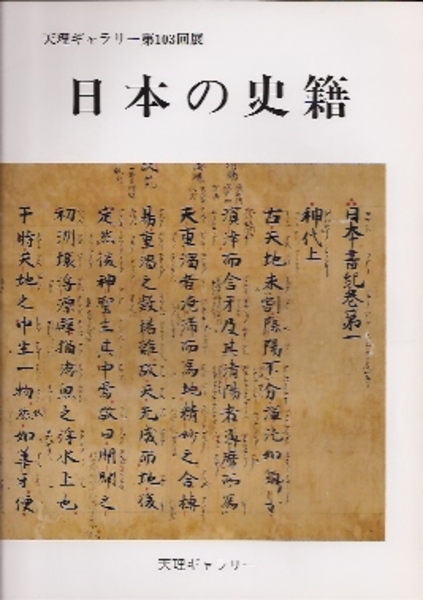 天理ギャラリー第103回展
日本の史籍
日本書紀巻第一
神代上
古天地未剖陰陽不分渾沌如鶏子
溟涬而含牙及其清陽者薄靡而為
天重濁者淹滞而為地精妙之合摶
易重濁之凝場難故天先成而地後
定然後神聖生其中焉故曰開闢之
初洲壌浮漂譬猶游魚之浮水上也
于時天地之中生一物状如葦牙便
天理ギャラリー